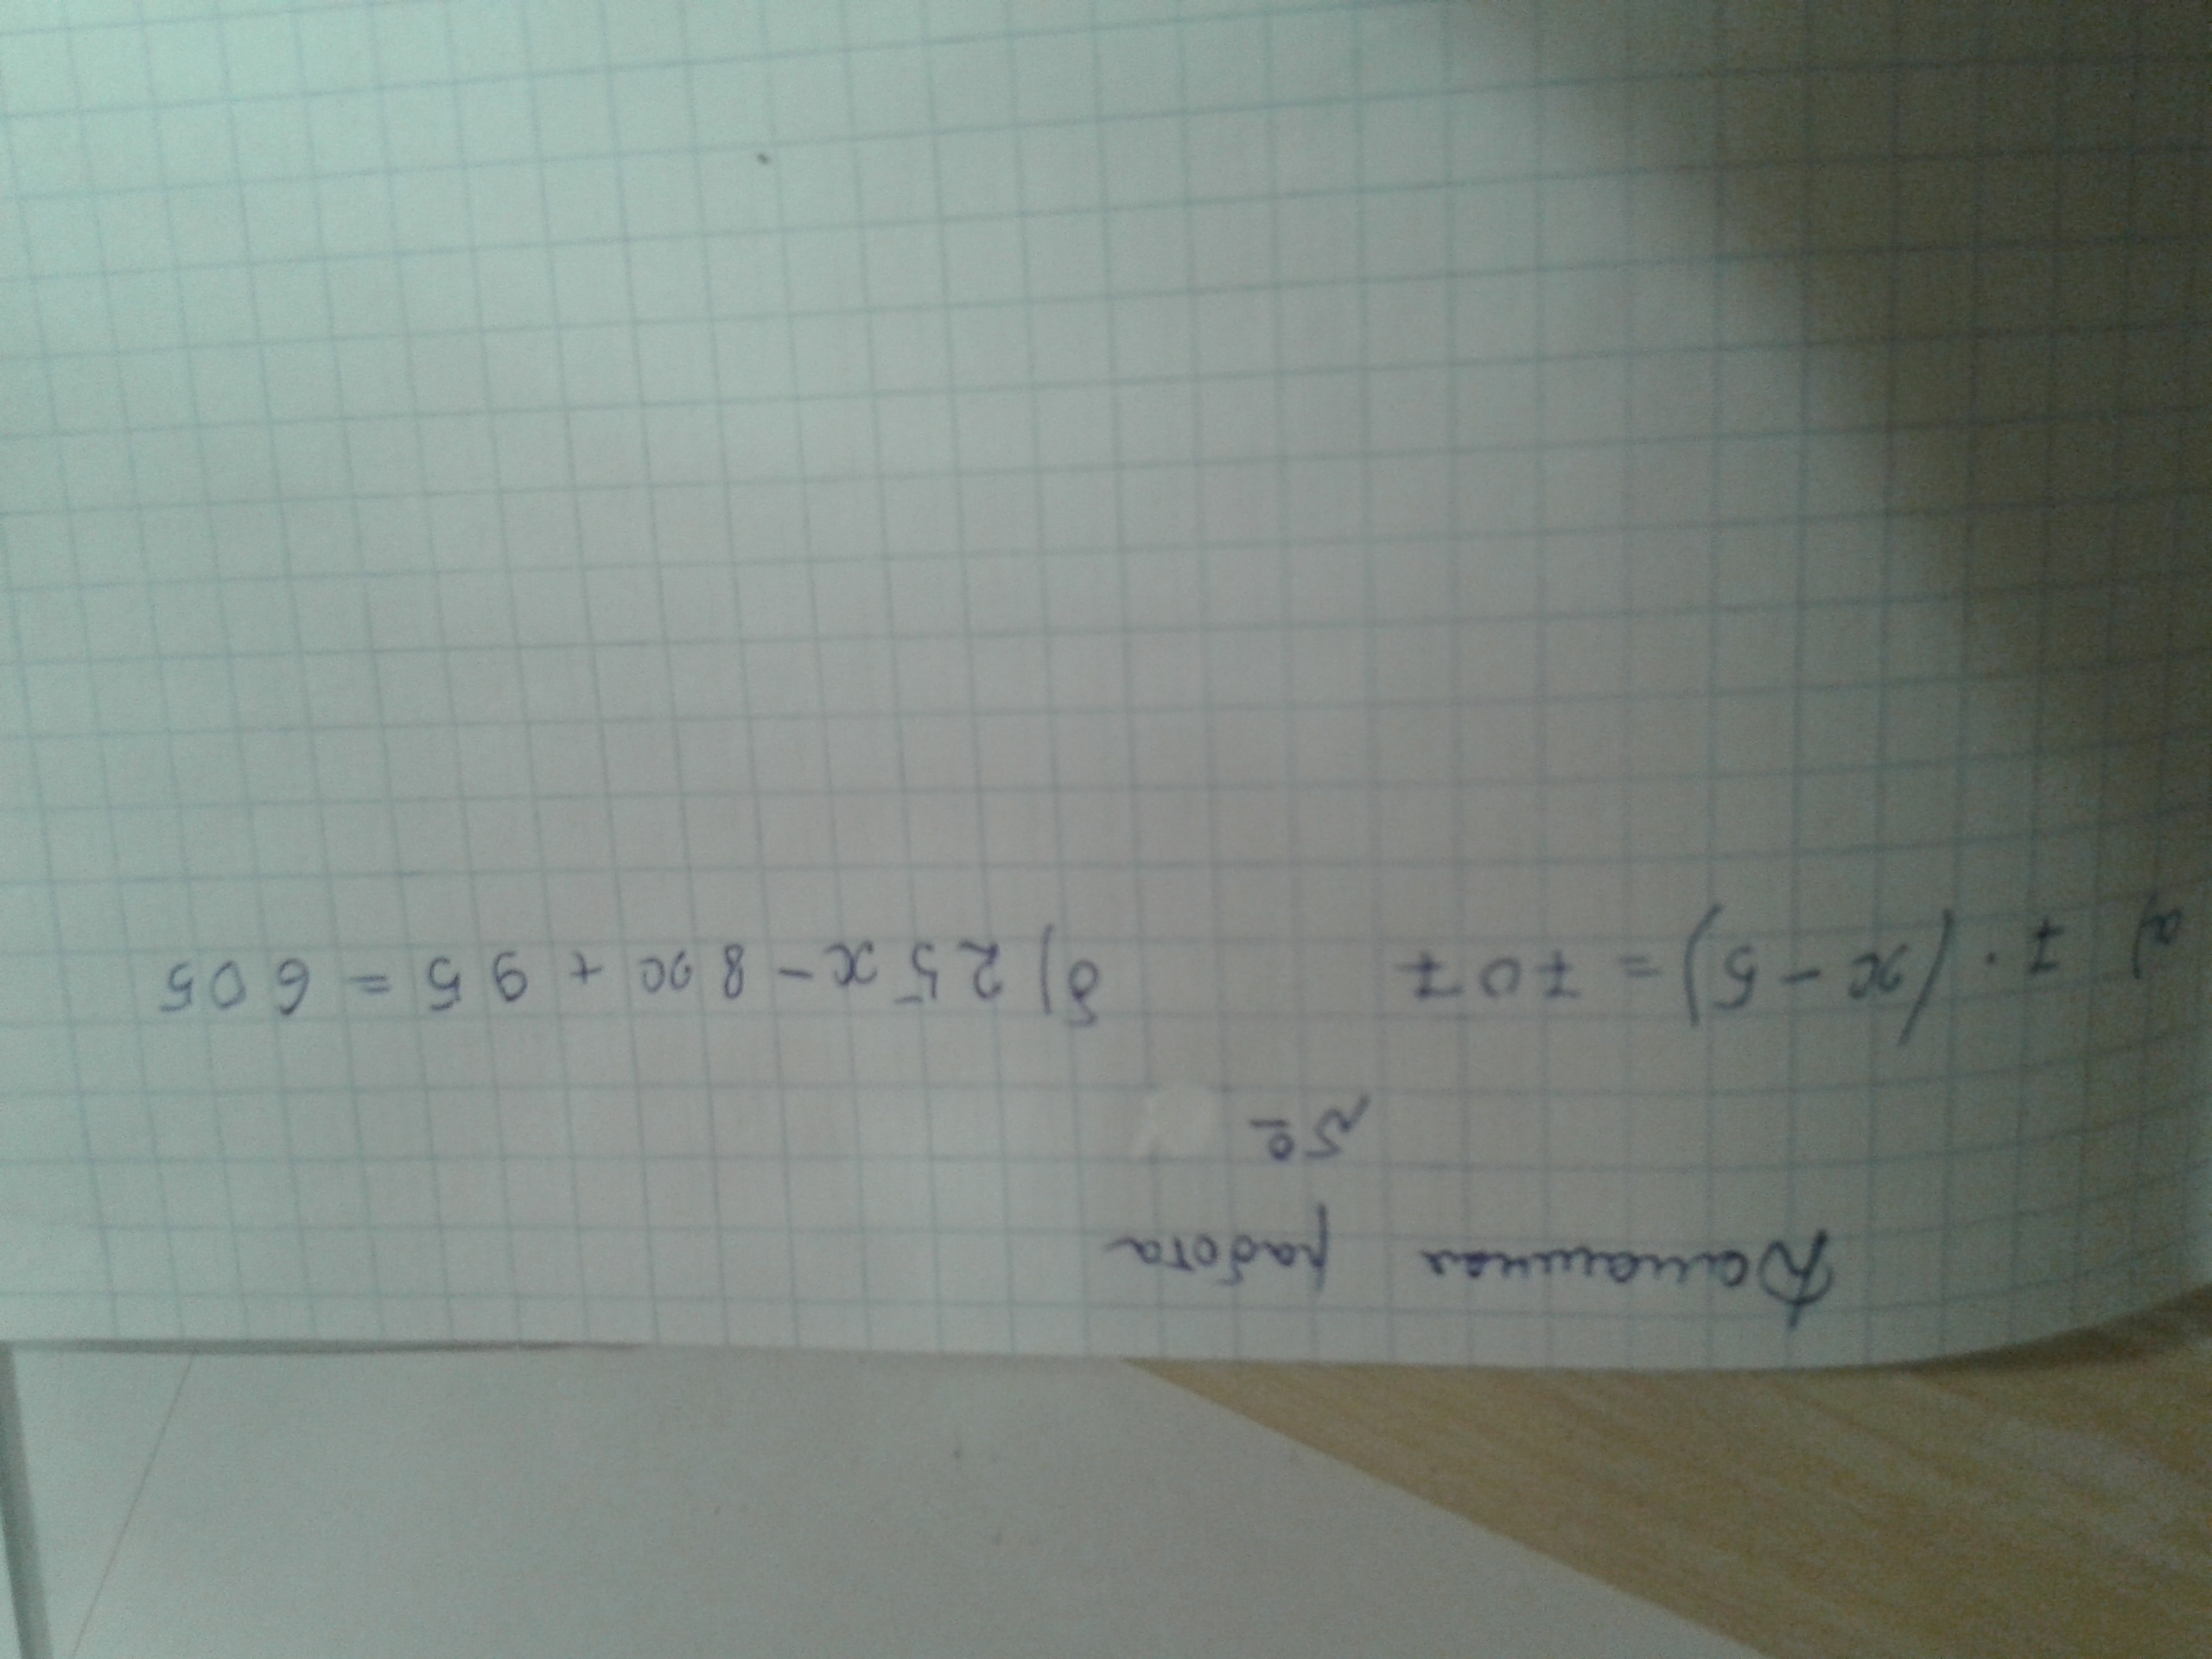 Домашняя работа
№
а) 7 · (x - 5) = 707 б) 25x - 8x + 95 = 605